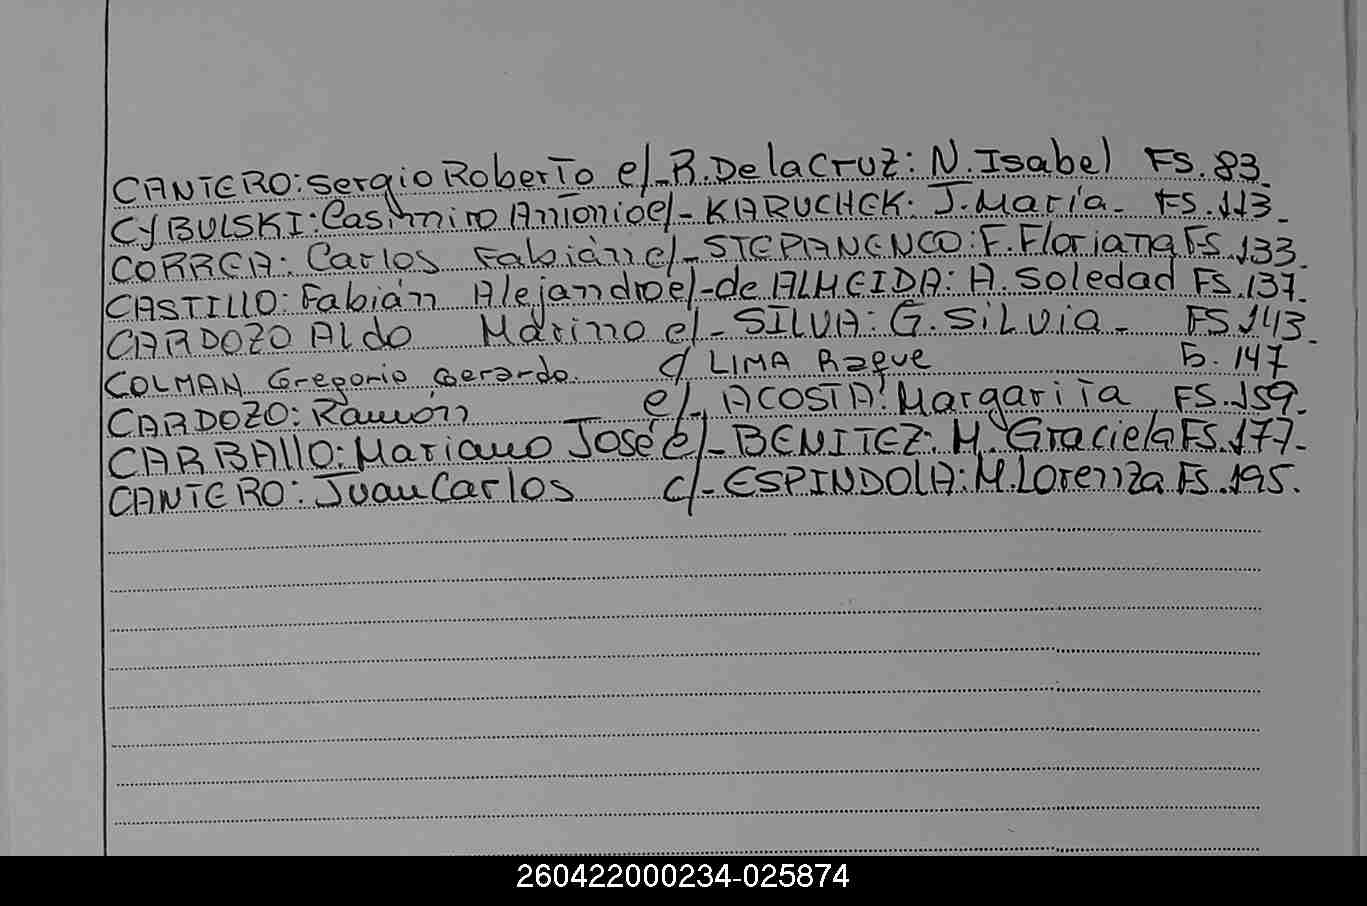 CANTERO: Sergio Roberto c/- R. De la Cruz: N. Isabel FS. 83.
CYBULSKI: Casimiro Antonio c/- KARUCHEK: J. María. - FS. 113.
CORREA: Carlos Fabián c/- STEPANENCO: F. Floriana FS. 133.
CASTILLO: Fabián Alejandro c/- de ALMEIDA: A. Soledad FS. 137.
CARDOZO Aldo Marino c/- SILVA: G. Silvia - FS. 143.
COLMAN Gregorio Gerardo. c/ LIMA Raque Fs. 147
CARDOZO: Ramón c/- ACOSTA: Margarita FS. 159.
CARBALLO: Mariano José c/- BENITEZ: M. Graciela FS. 177-
CANTERO: Juan Carlos c/- ESPINDOLA: M. Lorenza FS. 195.
260422000234-025874